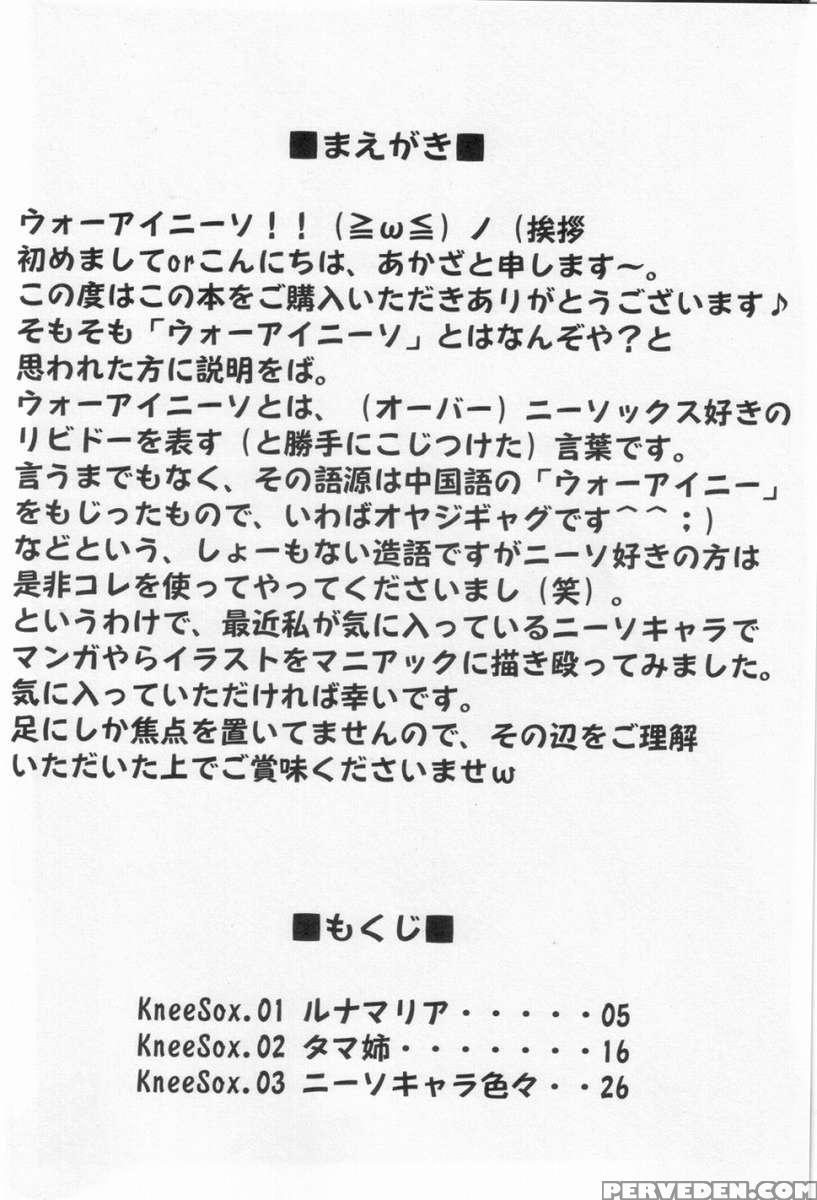 ■まえがき■
ウォーアイニーソ！！（≧ω≦）ノ（挨拶
初めましてorこんにちは、あかざと申します～。
この度はこの本をご購入いただきありがとうございます♪
そもそも「ウォーアイニーソ」とはなんぞや？と
思われた方に説明をば。
ウォーアイニーソとは、（オーバー）ニーソックス好きの
リビドーを表す（と勝手にこじつけた）言葉です。
言うまでもなく、その語源は中国語の「ウォーアイニー」
をもじったもので、いわばオヤジギャグです＾＾；）
などという、しょーもない造語ですがニーソ好きの方は
是非コレを使ってやってくださいまし（笑）。
というわけで、最近私が気に入っているニーソキャラで
マンガやらイラストをマニアックに描き殴ってみました。
気に入っていただければ幸いです。
足にしか焦点を置いてませんので、その辺をご理解
いただいた上でご賞味くださいませω
■もくじ■
KneeSox.01 ルナマリア・・・・・05
KneeSox.02 タマ姉・・・・・・・16
KneeSox.03 ニーソキャラ色々・・26
PERVEDEN.COM